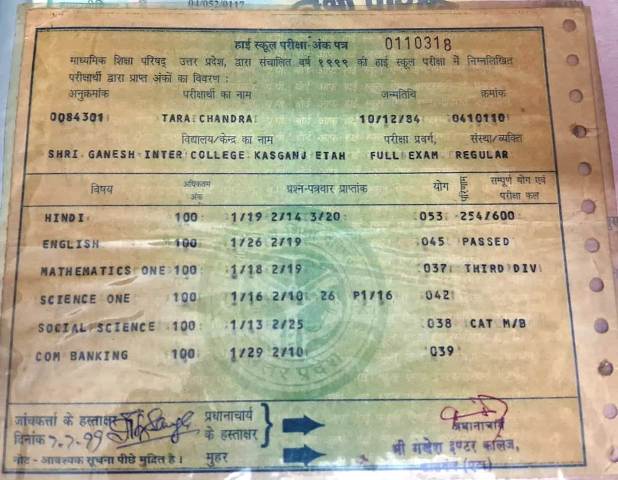 04/052/0117
हाई स्कूल परीक्षा-अंक पत्र 0110318
माध्यमिक शिक्षा परिषद् उत्तर प्रदेश, द्वारा संचालित वर्ष १९९९ की हाई स्कूल परीक्षा में निम्नलिखित
परीक्षार्थी द्वारा प्राप्त अंकों का विवरण :
अनुक्रमांक परीक्षार्थी का नाम जन्मतिथि क्रमांक
0084301 TARA CHANDRA 10/12/84 0410110
विद्यालय/केन्द्र का नाम परीक्षा प्रवर्ग, संस्था/व्यक्ति
SHRI GANESH INTER COLLEGE KASGANJ ETAH FULL EXAM REGULAR
विषय अधिकतम अंक प्रश्न-पत्रवार प्राप्तांक योग परिणाम सम्पूर्ण योग एवं परीक्षा फल
HINDI 100 1/19 2/14 3/20 053 254/600
ENGLISH 100 1/26 2/19 045 PASSED
MATHEMATICS ONE 100 1/18 2/19 037 THIRD DIV
SCIENCE ONE 100 1/16 2/10 26 P1/16 042
SOCIAL SCIENCE 100 1/13 2/25 038 CAT M/B
COM BANKING 100 1/29 2/10 039
उत्तर प्रदेश
जांचकर्त्ता के हस्ताक्षर प्रधानाचार्य
दिनांक 7-7-99 के हस्ताक्षर
नोट - आवश्यक सूचना पीछे मुद्रित है। मुहर
प्रधानाचार्य
श्री गणेश इण्टर कालेज,